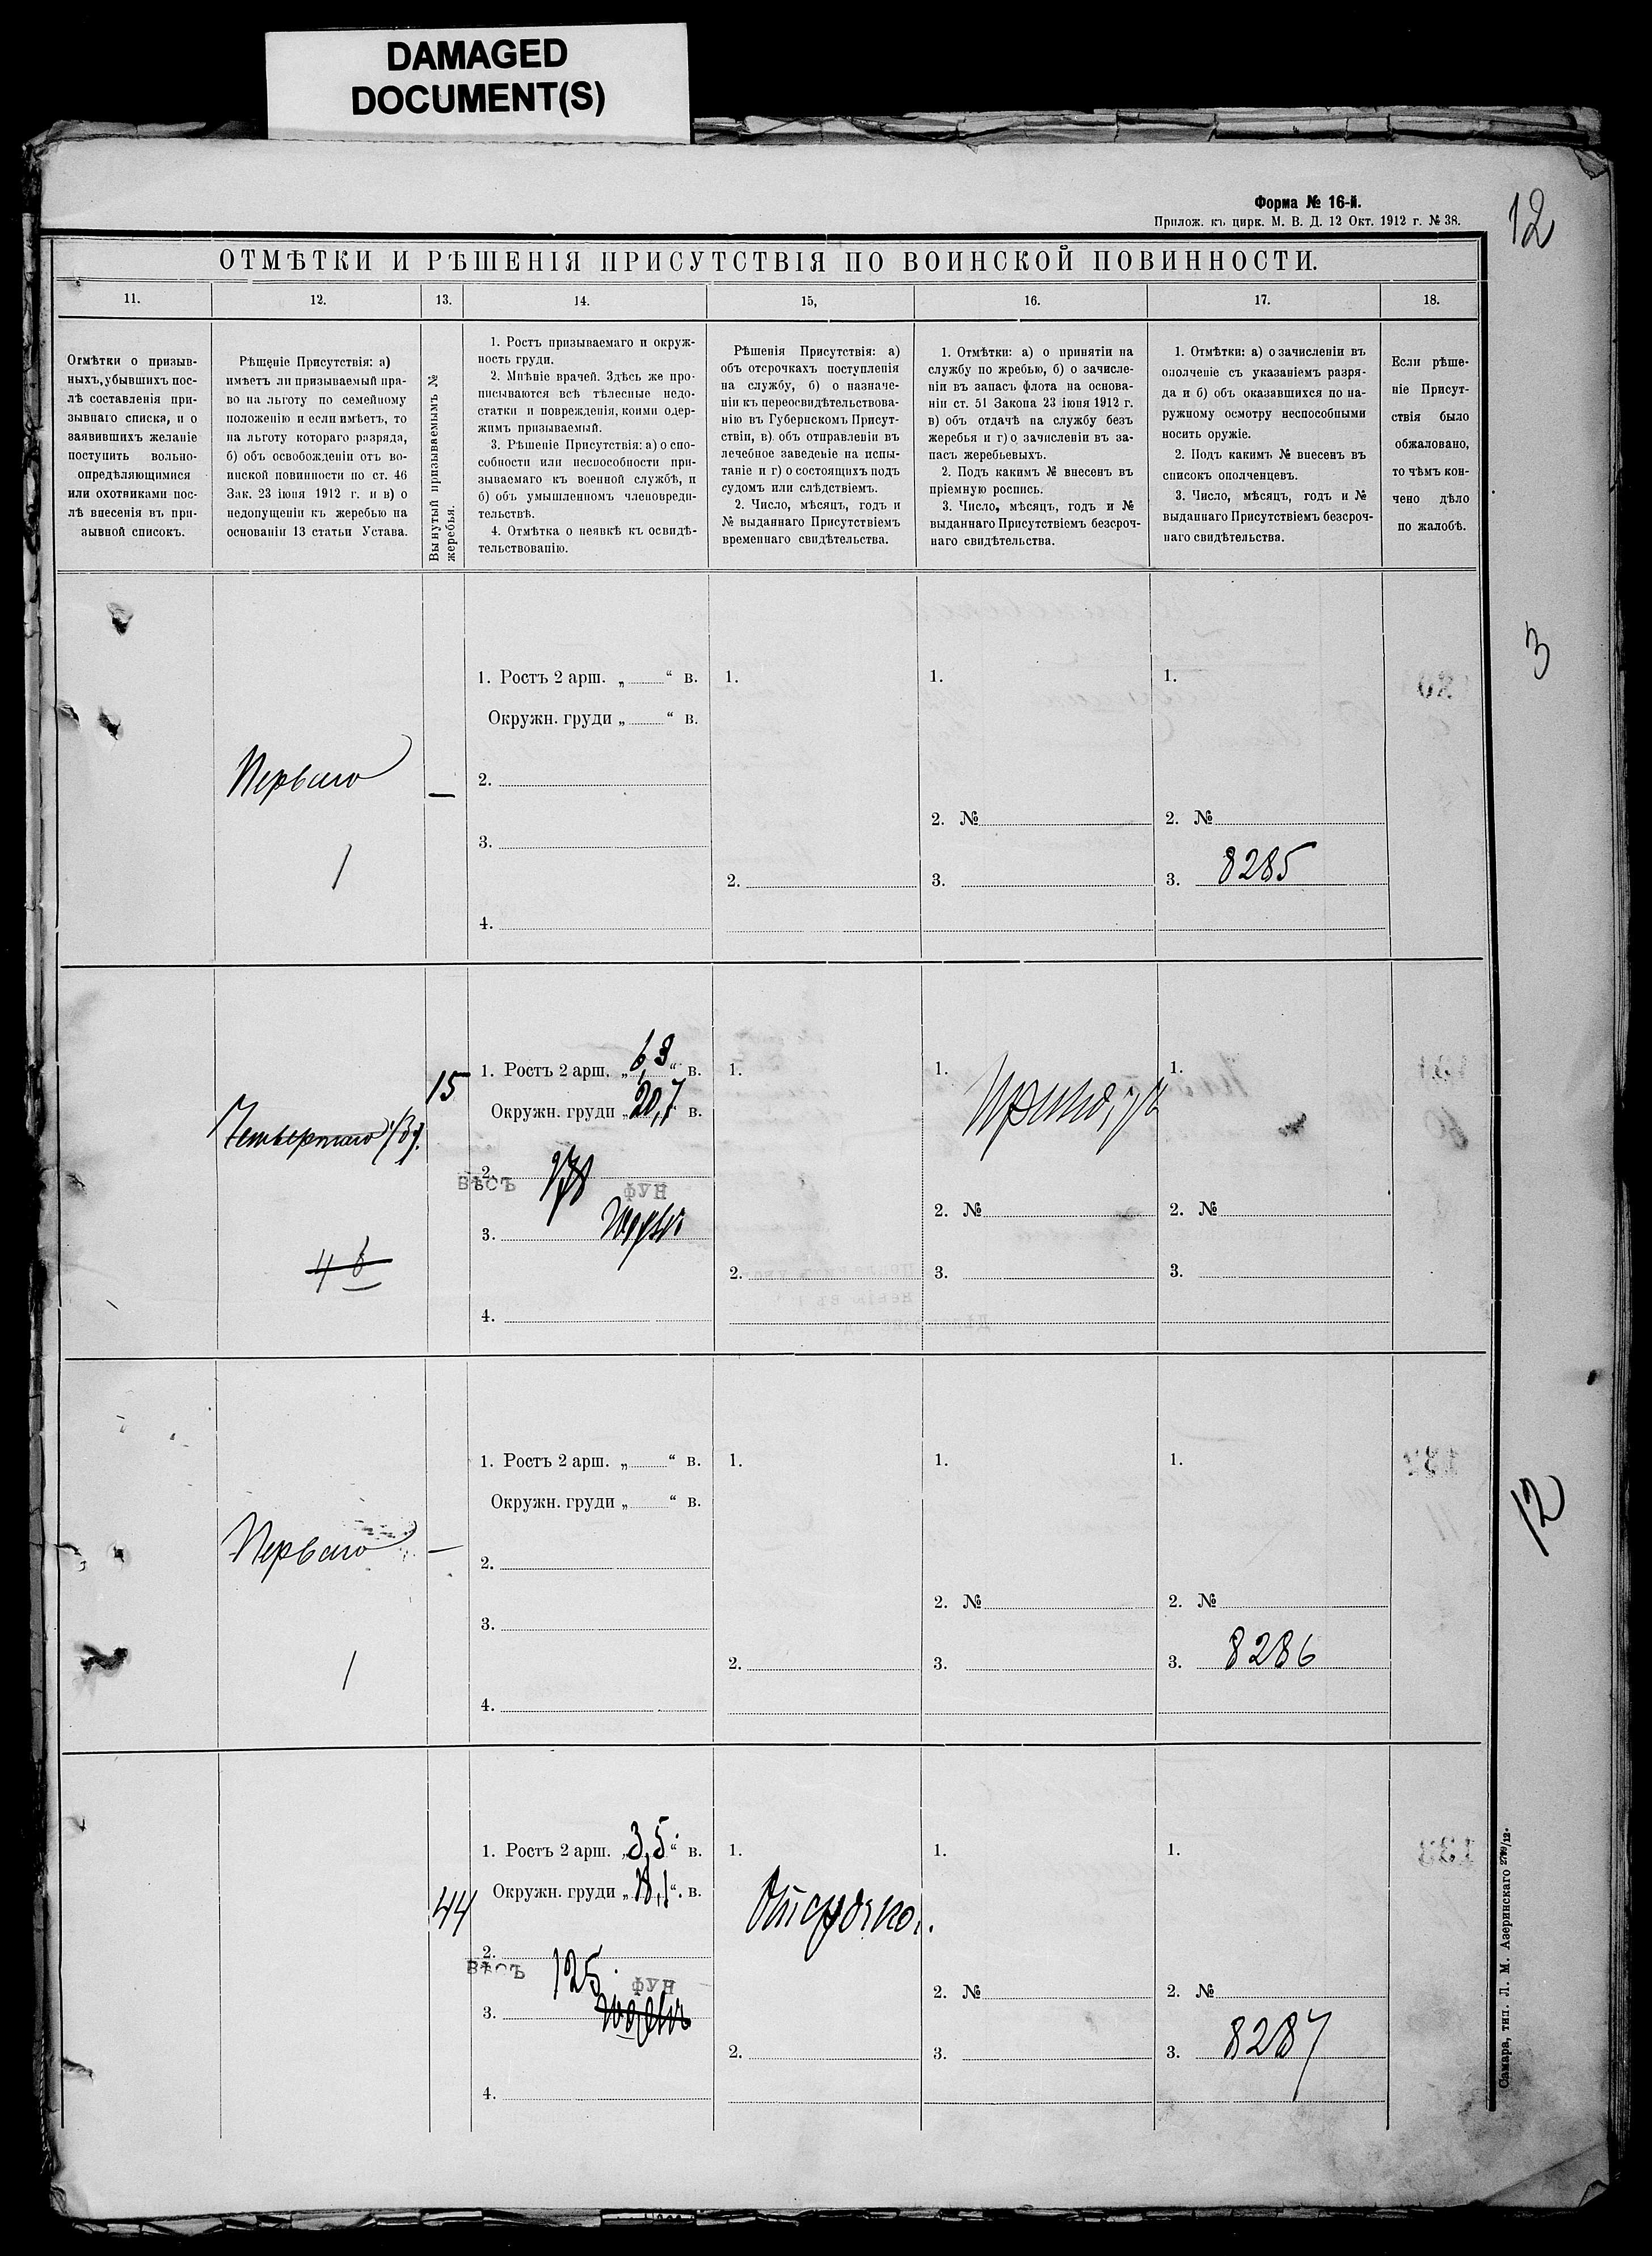 DAMAGED
DOCUMENT(S)
Форма № 16-й.
Прилож. къ цирк. М. В. Д. 12 Окт. 1912 г. № 38.
12
ОТМѢТКИ И РѢШЕНІЯ ПРИСУТСТВІЯ ПО ВОИНСКОЙ ПОВИННОСТИ.
11.
12.
13.
14.
15,
16.
17.
18.
Отмѣтки о призыв-
ныхъ, убывшихъ пос-
лѣ составленія при-
зывнаго списка, и о
заявившихъ желаніе
поступить вольно-
опредѣляющимися
или охотниками пос-
лѣ внесенія въ при-
зывной списокъ.
Рѣщеніе Присутствія: а)
имѣетъ ли призываемый пра-
во на льготу по семейному
положенію и если имѣетъ, то
на льготу котораго разряда,
б) объ освобожденіи отъ во-
инской повинности по ст. 46
Зак. 23 іюня 1912 г. и в) о
недопущеніи къ жеребью на
основаніи 13 статьи Устава.
Вынутый призываемымъ №
жеребья.
1. Ростъ призываемаго и окруж-
ность груди.
2. Мнѣніе врачей. Здѣсь же про-
писываются всѣ тѣлесные недо-
статки и поврежденія, коими одер-
жимъ призываемый.
3. Рѣшеніе Присутствія: а) о спо-
собности или неспособности при-
зываемаго къ военной службѣ, и
б) объ умышленномъ членовреди-
тельствѣ.
4. Отмѣтка о неявкѣ къ освидѣ-
тельствованію.
Рѣшенія Присутствія: а)
объ отсрочкахъ поступленія
на службу, б) о назначе-
ніи къ переосвидѣтельствова-
нію въ Губернскомъ Присут-
ствіи, в) объ отправленіи въ
лечебное заведеніе на испы-
таніе и г) о состоящихъ подъ
судомъ или слѣдствіемъ.
2. Число, мѣсяцъ, годъ и
№ выданнаго Присутствіемъ
временнаго свидѣтельства.
1. Отмѣтки: а) о принятіи на
службу по жребью, б) о зачисле-
ніи въ запасъ флота на основа-
ніи ст. 51 Закона 23 іюня 1912 г.
в) объ отдачѣ на службу безъ
жеребья и г) о зачисленіи въ за-
пасъ жеребьевыхъ.
2. Подъ какимъ № внесенъ въ
пріемную роспись.
3. Число, мѣсяцъ, годъ и №
выданнаго Присутствіемъ безсроч-
наго свидѣтельства.
1. Отмѣтки: а) о зачисленіи въ
ополченіе съ указаніемъ разря-
да и б) объ оказавшихся по на-
ружному осмотру неспособными
носить оружіе.
2. Подъ какимъ № внесенъ въ
списокъ ополченцевъ.
3. Число, мѣсяцъ, годъ и №
выданнаго Присутствіемъ безсроч-
наго свидѣтельства.
Если рѣше-
ніе Присут-
ствія было
обжаловано,
то чѣмъ кон-
чено дѣло
по жалобѣ.
3
1. Ростъ 2 арш. „ “ в. 1. 1. 1.
Окружн. груди „ “ в.
Перваго —
2.
2. № 2. №
1
3.
2. 3. 3. 8285
4.
15 1. Ростъ 2 арш. „6,3“ в. 1. 1. 1.
Окружн. груди „20,7“ в.
Четвертаго
2.
ВѢСЪ 178 ФУН
2. № 2. №
3. Годенъ
4
2. 3. 3.
4.
1. Ростъ 2 арш. „ “ в. 1. 1. 1.
Окружн. груди „ “ в.
12
Перваго —
2.
2. № 2. №
3.
1
2. 3. 3. 8286
4.
1. Ростъ 2 арш. „3,5“ в. 1. 1. 1.
44 Окружн. груди „ “ в.
Отсрочка.
2.
ВѢСЪ 125 ФУН
2. № 2. №
3. Годенъ
2. 3. 3. 8287
4.
Самара, тип. Л. М. Азеринскаго